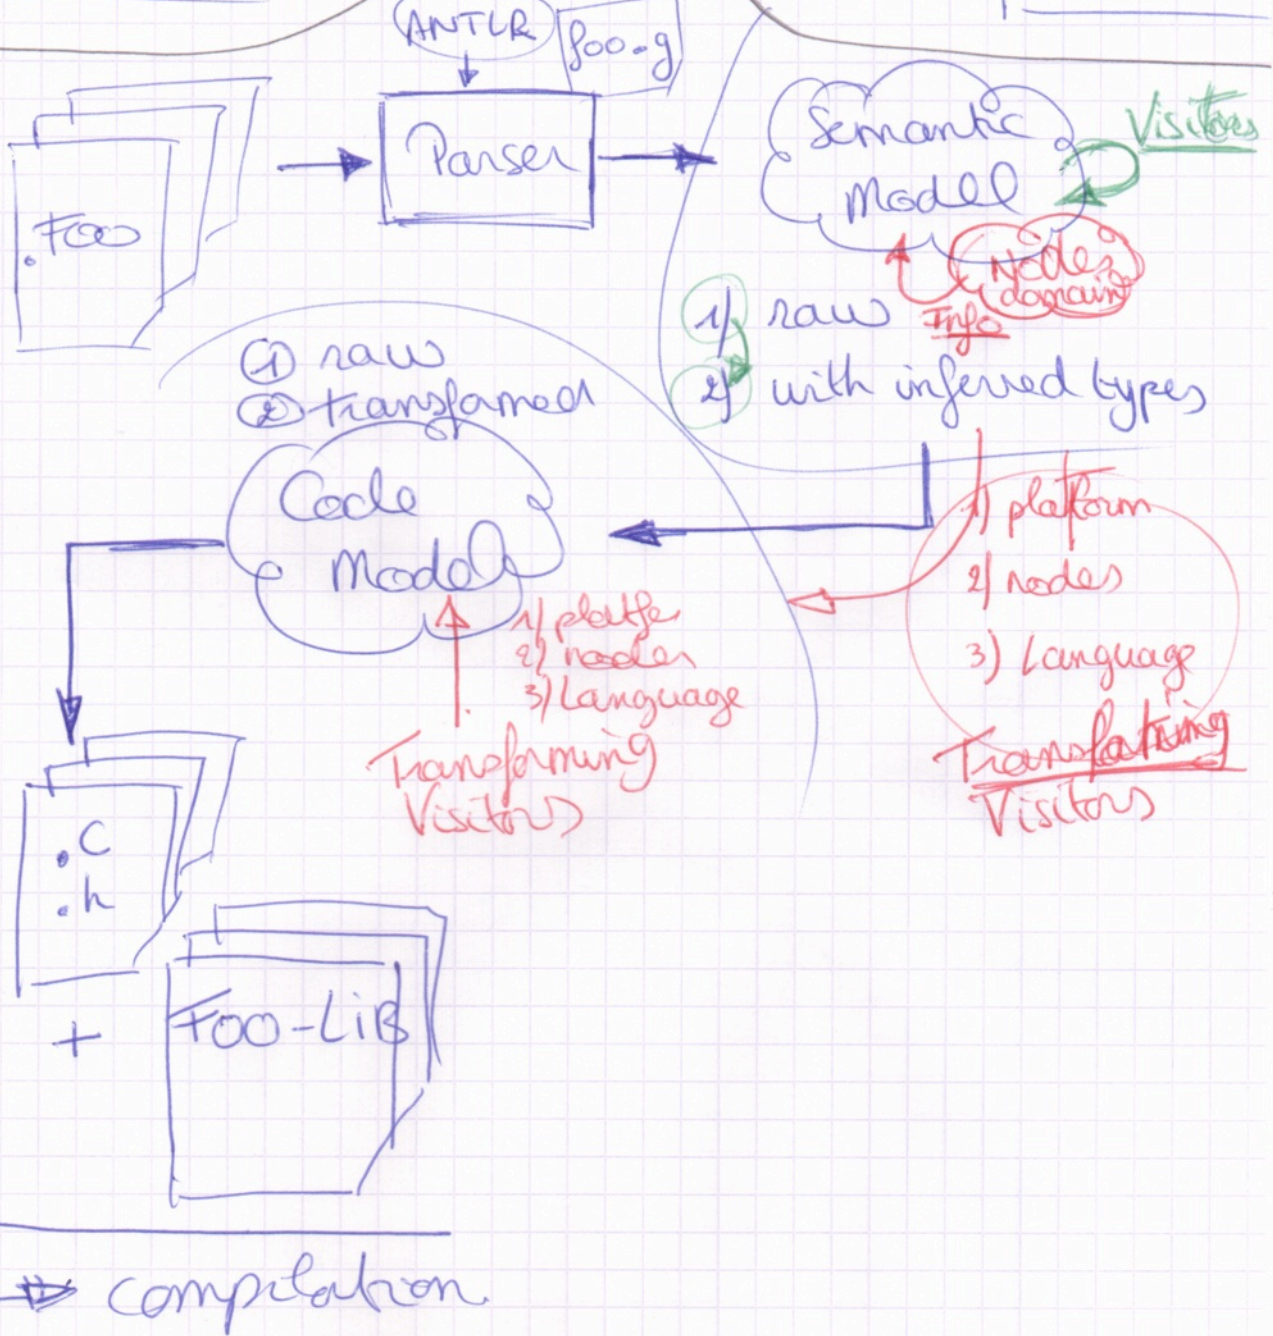 ANTLR
foo.g
.Foo
Parser
Semantic
Model
Visitors
Nodes
domain
Info
1) raw
2) with inferred types
① raw
② transformed
Code
Model
1) platform
2) nodes
3) Language
Transforming
Visitors
2) nodes
3) Language
Transforming
Visitors
.C
.h
+
FOO-LiB
compilation